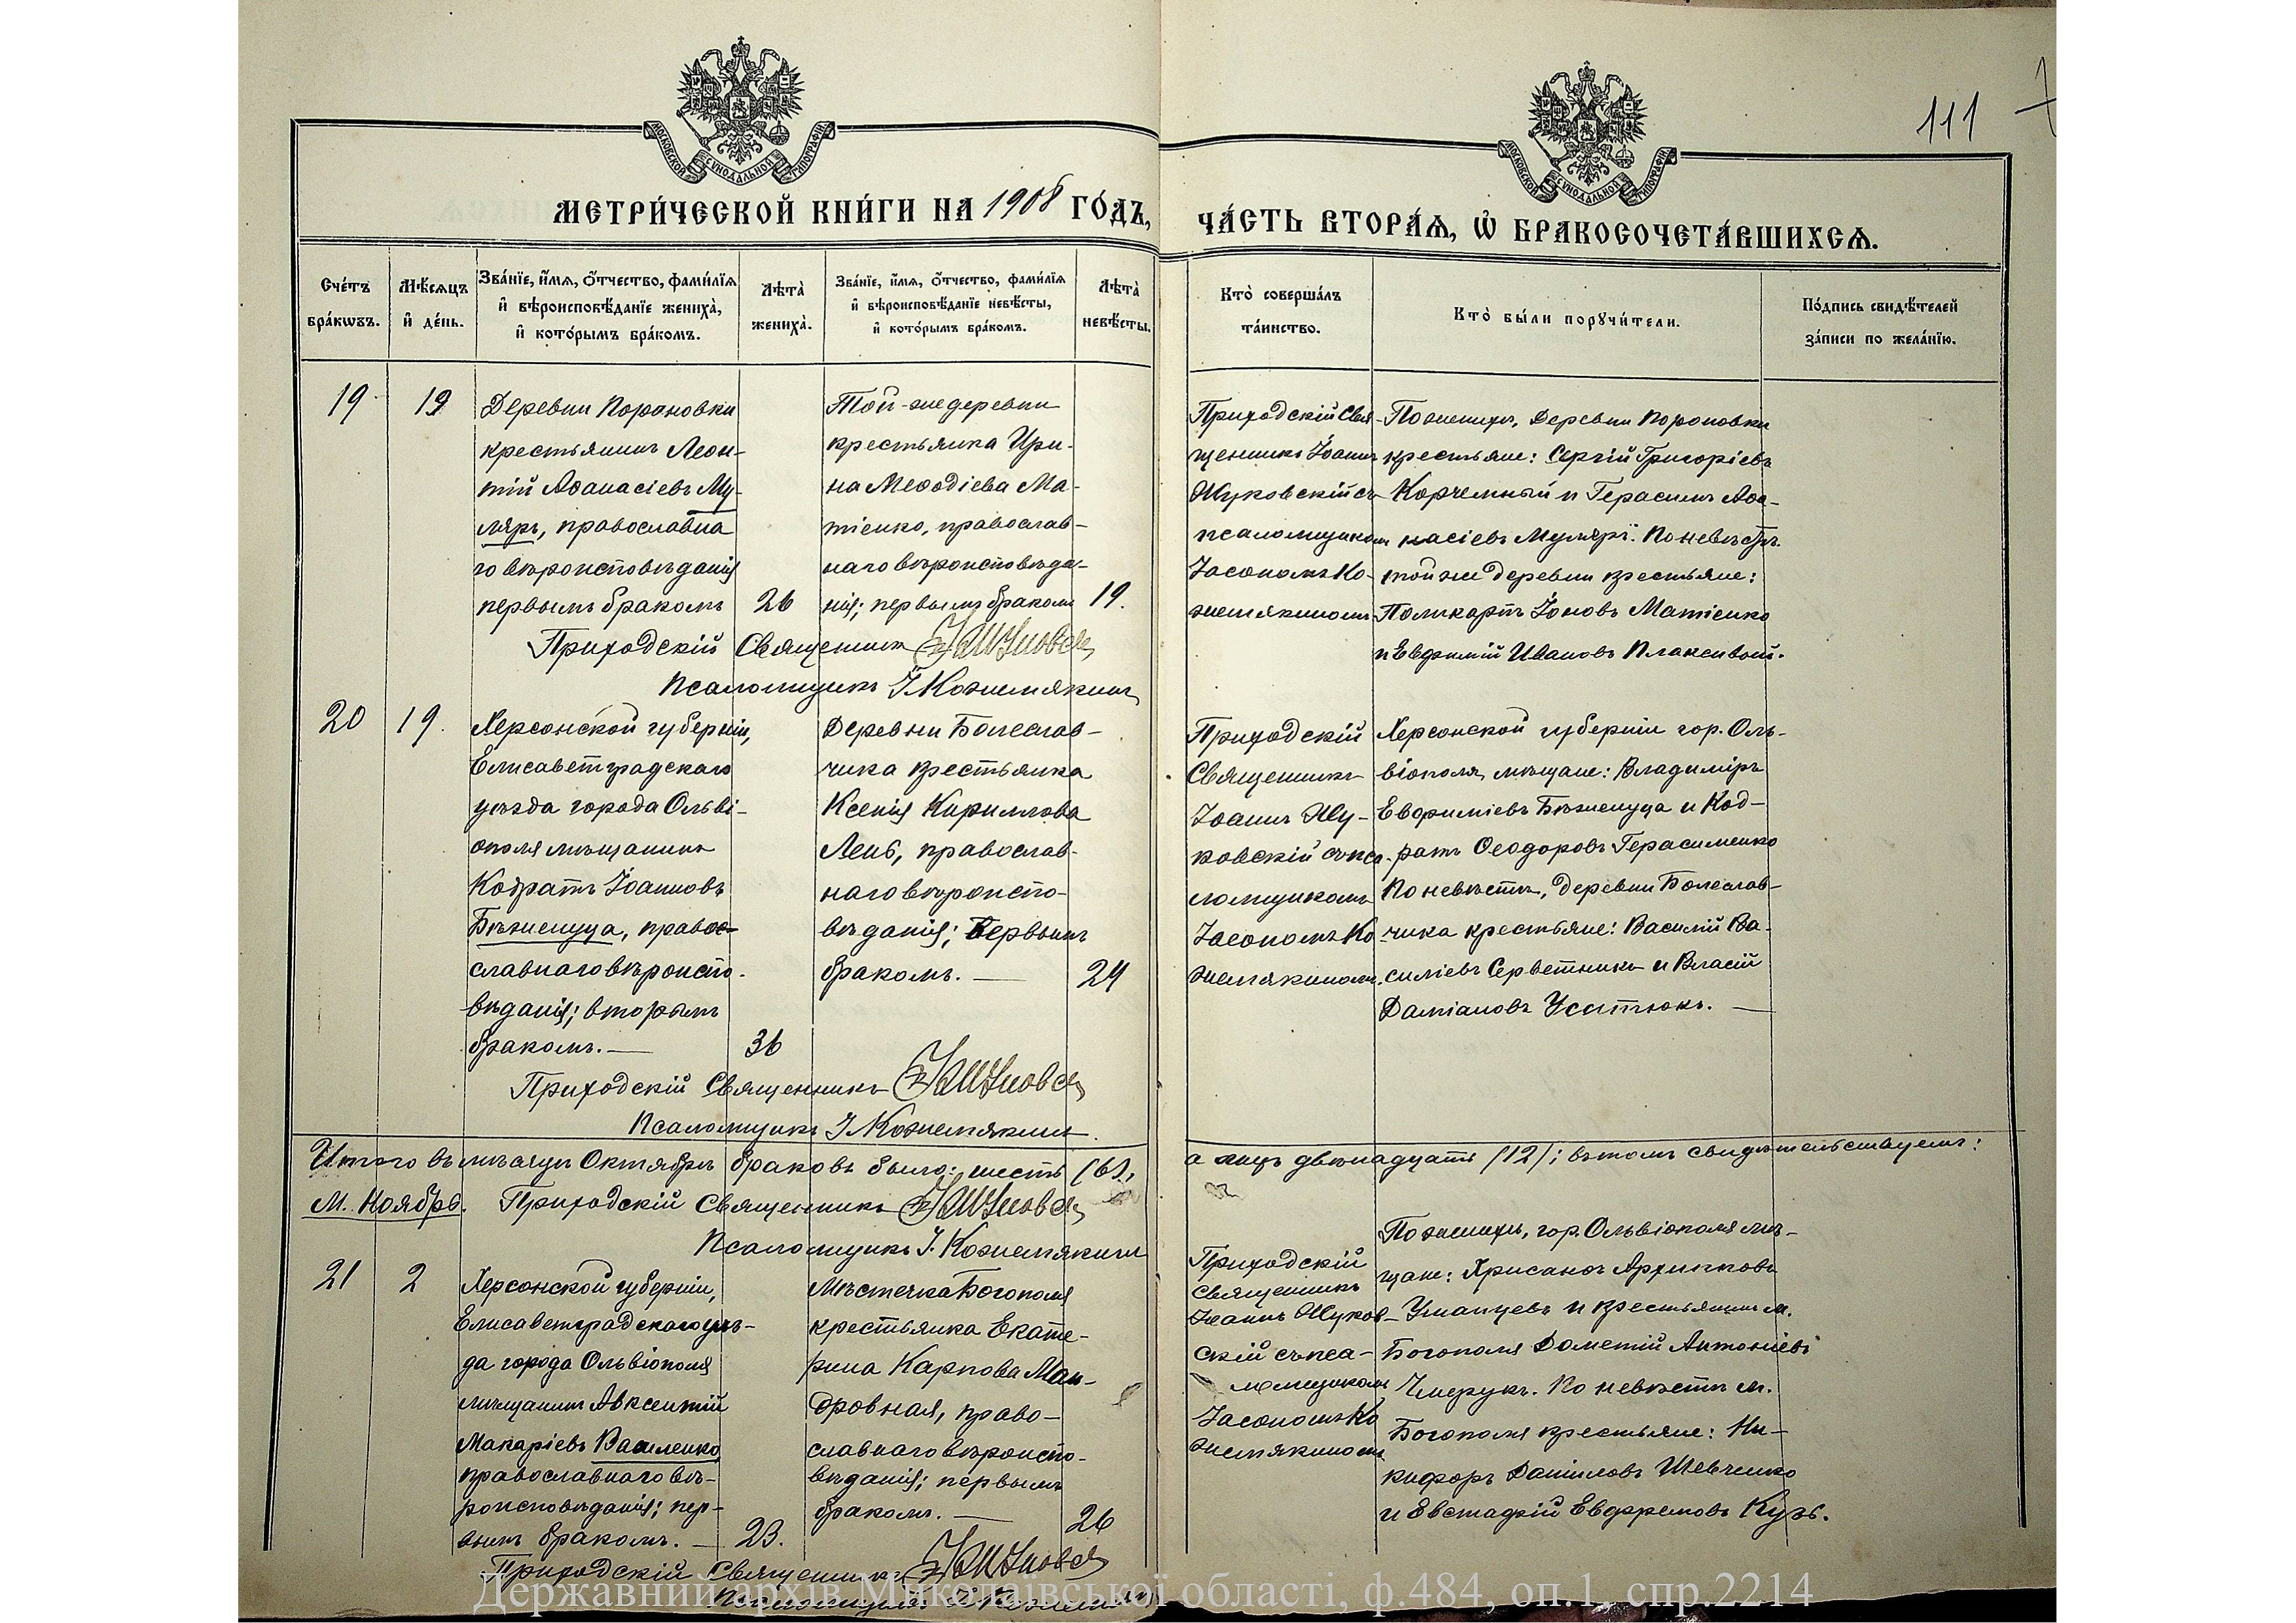 111
МОСКОВСКОЙ СѴНОДАЛЬНОЙ ТИПОГРАФІИ
МОСКОВСКОЙ СѴНОДАЛЬНОЙ ТИПОГРАФІИ
МЕТРИ́ЧЕСКОЙ КНИ́ГИ НА 1908 ГО́ДЪ,
ЧА́СТЬ ВТОРА́Ѧ, Ѡ҆ БРАКОСОЧЕТА́ВШИХСѦ.
Сче́тъ
бра́кѡвъ.
Мѣ́сѧцъ
и҆ де́нь.
Зва́нїе, и҆́мѧ, ѻ҆́тчество, фами́лїѧ
и҆ вѣроисповѣ́данїе жениха̀,
и҆ кото́рымъ бра́комъ.
Лѣ́та̀
жениха̀.
Зва́нїе, и҆́мѧ, ѻ҆́тчество, фами́лїѧ
и҆ вѣроисповѣ́данїе невѣ́сты,
и҆ кото́рымъ бра́комъ.
Лѣ́та̀
невѣ́сты.
Кто̀ соверша́лъ
та́инство.
Кто̀ бы́ли порꙋчи́тели.
По́дпись свидѣ́телей
за́писи по жела́нїю.
19
19
Деревни Порановки
крестьянинъ Леон-
тій Аѳанасіевъ Му-
ляръ, православна
го вѣроисповѣданія
первымъ бракомъ
26
Той-же деревни
крестьянка Ири-
на Меѳодіева Ма-
тіенко, православ-
наго вѣроисповѣда-
нія; первымъ бракомъ
19.
Приходскій Свя-
щенникъ Іоаннъ
Жуковскій съ
псаломщикомъ
Іасономъ Ко-
жемякиномъ
По женихѣ, Деревни Пороновки
крестьяне: Сергій Григоріевъ
Корчемный и Герасимъ Аѳа-
насіевъ Муляръ. По невѣстѣ.
той же деревни крестьяне:
Поликарпъ Іоновъ Матіенко
и Евѳимій Ивановъ Плаксивой.
Приходскій Священникъ
Псаломщикъ І. Кожемякинъ
20
19.
Херсонской губерніи,
Елисаветградскаго
уѣзда города Ольві-
ополя мѣщанинъ
Кодратъ Іоанновъ
Бѣженуца, право-
славнаго вѣроиспо-
вѣданія; вторымъ
бракомъ. —
36
Деревни Болеслав-
чика крестьянка
Ксенія Кириллова
Лень, православ-
наго вѣроиспо-
вѣданія; первымъ
бракомъ. —
24
Приходскій
Священникъ
Іоаннъ Жу-
ковскій съ пса-
ломщикомъ
Іасономъ Ко
жемякиномъ.
Херсонской губерніи гор. Оль-
віополя, мѣщане: Владиміръ
Евфиміевъ Бѣженуца и Код-
ратъ Ѳеодоровъ Герасименко
По невѣстѣ, деревни Болеслав-
чика крестьяне: Василій Ва-
силіевъ Серветникъ и Власій
Даміановъ Усатюкъ. —
Приходскій Священникъ
Псаломщикъ І. Кожемякинъ.
Итого въ мѣсяцѣ Октябрѣ браковъ было: шесть (6),
а лицъ двѣнадцать (12); въ томъ свидѣтельствуемъ:
М. Ноябрь. Приходскій Священникъ
Псаломщикъ І. Кожемякинъ
21
2
Херсонской губерніи,
Елисаветградскаго уѣз-
да города Ольвіополя
мѣщанинъ Авксентій
Макаріевъ Василенко
православнаго вѣ-
роисповѣданія; пер-
вымъ бракомъ. —
23.
Мѣстечка Богополя
крестьянка Екате-
рина Карпова Ман-
дровная, право-
славнаго вѣроиспо-
вѣданія; первымъ
бракомъ. —
26
Приходскій
Священникъ
Іоаннъ Жуков-
скій съ пса-
ломщикомъ
Іасономъ Ко
жемякиномъ
По женихѣ, гор. Ольвіополя мѣ-
щане: Хрисанѳъ Архипповъ
Уманцевъ и крестьянинъ м.
Богополя Дометій Антоніевъ
По невѣстѣ м.
Богополя крестьяне: Ни-
кифоръ Даніиловъ Шевченко
и Евстафій Евфремовъ Кузь.
Приходскій Священникъ
Державний архів Миколаївської області, ф.484, оп.1, спр.2214